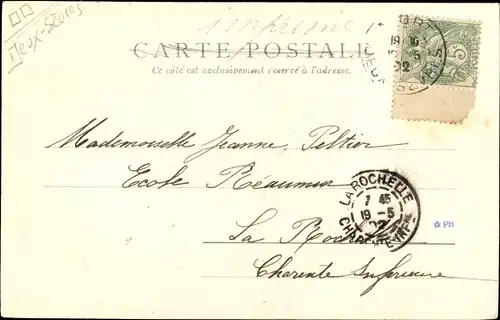 Deux-Sèvres
imprimé
CARTE POSTALE
Ce côté est exclusivement reservé à l'adresse.
19 5
02
5
SEVRES
Mademoiselle Jeanne Peltier
Ecole Réaumur
LA ROCHELLE
7 45
19 -5
02
CHARENTE INFRE
La Rochelle
PB
Charente Inférieure